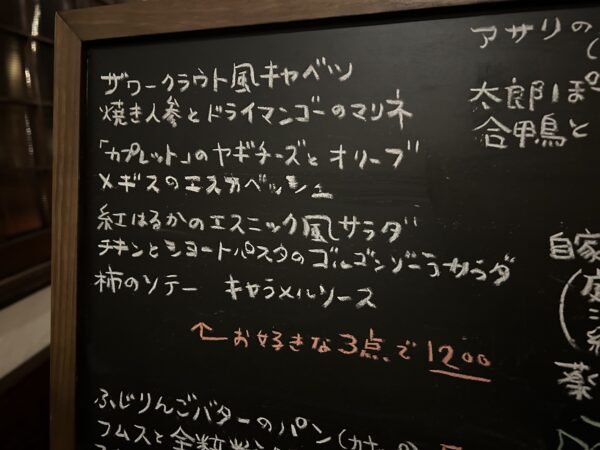 ザワークラウト風キャベツ
焼き人参とドライマンゴーのマリネ
「カプレット」のヤギチーズとオリーブ
メギスのエスカベッシュ
紅はるかのエスニック風サラダ
チキンとショートパスタのゴルゴンゾーラサラダ
柿のソテー キャラメルソース
←お好きな3点で1200
ふじりんごバターのパン(カナッペ)
フムスと全粒粉
アサリの
太郎ぽ
合鴨と
自家
薬